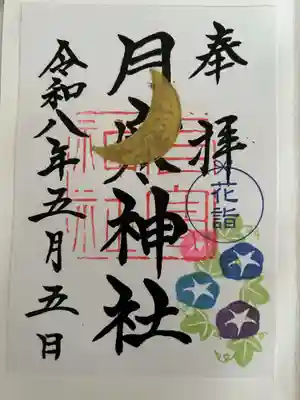 奉拝
花詣
月神社
令和八年五月五日